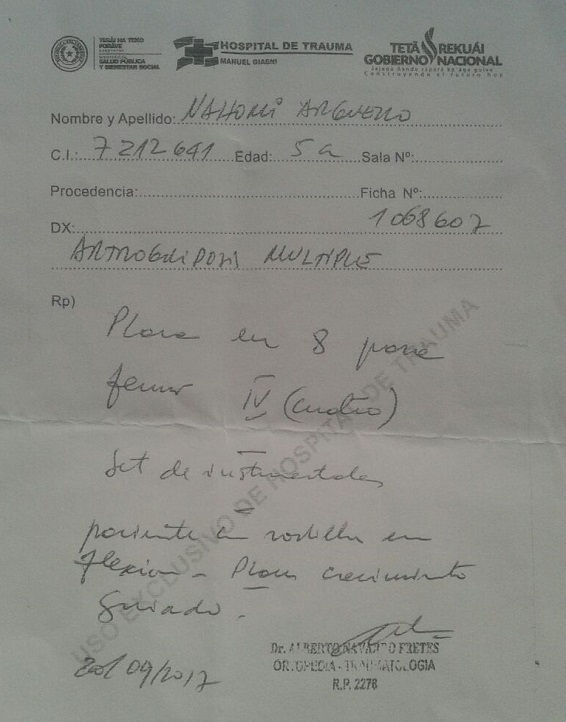 TESÃI HA TEKO
PORÃVE
SALUD PÚBLICA
Y BIENESTAR SOCIAL
HOSPITAL DE TRAUMA
MANUEL GIAGNI
TETÃ REKUÁI
GOBIERNO NACIONAL
Construyendo el futuro hoy
Nombre y Apellido: NAHOMI ARGUELLO
C.I.: 7212641 Edad: 5a Sala Nº:
Procedencia: Ficha Nº:
DX: 1068607
ARTROGRIPOSIS MULTIPLE
Rp)
Placa en 8 para
femur IV (cuatro)
Set de instrumentales
paciente con rodilla en
flexion - Placas crecimiento
guiado.
USO EXCLUSIVO DE HOSPITAL DE TRAUMA
20/09/2017
Dr. ALBERTO NAVARRO FRETES
ORTOPEDIA - TRAUMATOLOGIA
R.P. 2276